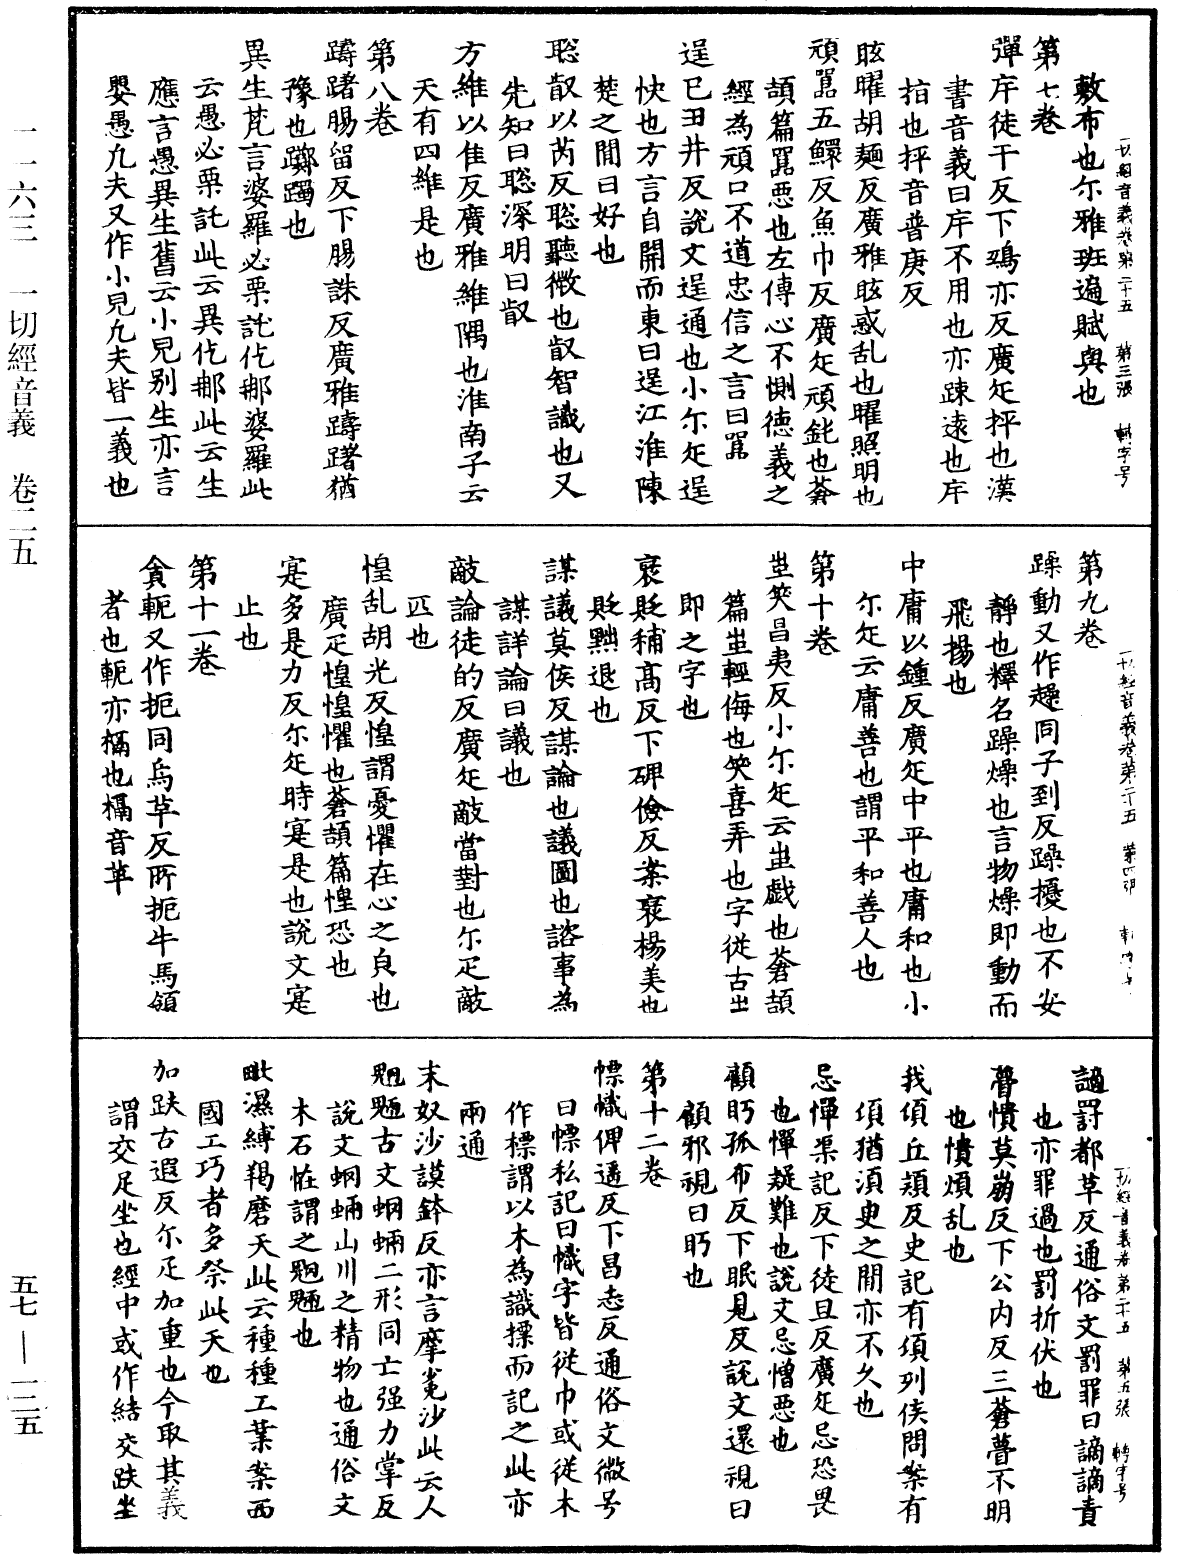 一切經音義卷第二十五 第三張 轉字号
敷布也尓雅班遍賦與也
第七卷
彈斥徒干反下鵶亦反廣疋抨也漢
書音義曰斥不用也亦踈遠也斥
拍也抨音普庚反
眩曜胡麺反廣雅眩惑乱也曜照明也
頑嚚五鰥反魚巾反廣疋頑鈍也蒼
頡篇嚚惡也左傳心不惻徳義之
經為頑口不道忠信之言曰嚚
逞已丑井反說文逞通也小尓疋逞
快也方言自關而東曰逞江淮陳
楚之間曰好也
聡叡以芮反聡聽微也叡智識也又
先知曰聡深明曰叡
方維以隹反廣雅維隅也淮南子云
天有四維是也
第八卷
躊躇腸留反下腸誅反廣雅躊躇猶
豫也躑躅也
異生梵言婆羅必栗託仡那婆羅此
云愚必栗託此云異仡那此云生
應言愚異生舊云小兒别生亦言
嬰愚凢夫又作小兒凢夫皆一義也
一切經音義卷第二十五 第四張
第九卷
躁動又作趮同子到反躁擾也不安
靜也釋名躁燥也言物燥即動而
飛揚也
中庸以鍾反廣疋中平也庸和也小
尓疋云庸善也謂平和善人也
第十卷
蚩笑昌夷反小尓疋云蚩戯也蒼頡
篇蚩輕侮也笑喜弄也字從古出
即之字也
襃貶補髙反下碑儉反案襃揚美也
貶黜退也
謀議莫侯反謀論也議圖也諮事為
謀詳論曰議也
敵論徒的反廣疋敵當對也尓疋敵
匹也
惶乱胡光反惶謂憂懼在心之皃也
廣疋惶惶懼也蒼頡篇惶恐也
寔多是力反尓疋時寔是也說文寔
止也
第十一卷
貪軛又作扼同烏革反所扼牛馬領
者也軛亦槅也槅音革
一切經音義卷第二十五 第五張 轉字号
讁罸都革反通俗文罰罪曰謫謫責
也亦罪過也罰折伏也
瞢憒莫崩反下公内反三蒼瞢不明
也憒煩乱也
我頃丘頴反史記有頃列侯問案有
頃猶須臾之間亦不久也
忌憚渠記反下徒旦反廣疋忌恐畏
也憚疑難也說文忌憎惡也
顧眄孤布反下眠見反說文還視曰
顧邪視曰眄也
第十二卷
幖幟俾遥反下昌志反通俗文微号
曰幖私記曰幟字皆從巾或從木
作標謂以木為識摽而記之此亦
兩通
末奴沙謨鉢反亦言摩㝹沙此云人
魍魎古文蛧蜽二形同亡强力掌反
說文蛧蜽山川之精物也通俗文
木石恠謂之魍魎也
毗濕縛羯磨天此云種種工業案西
國工巧者多祭此天也
加趺古遐反尓疋加重也今取其義
謂交足坐也經中或作結交趺坐
一一六三 一切經音義 卷二五
五七—一二五